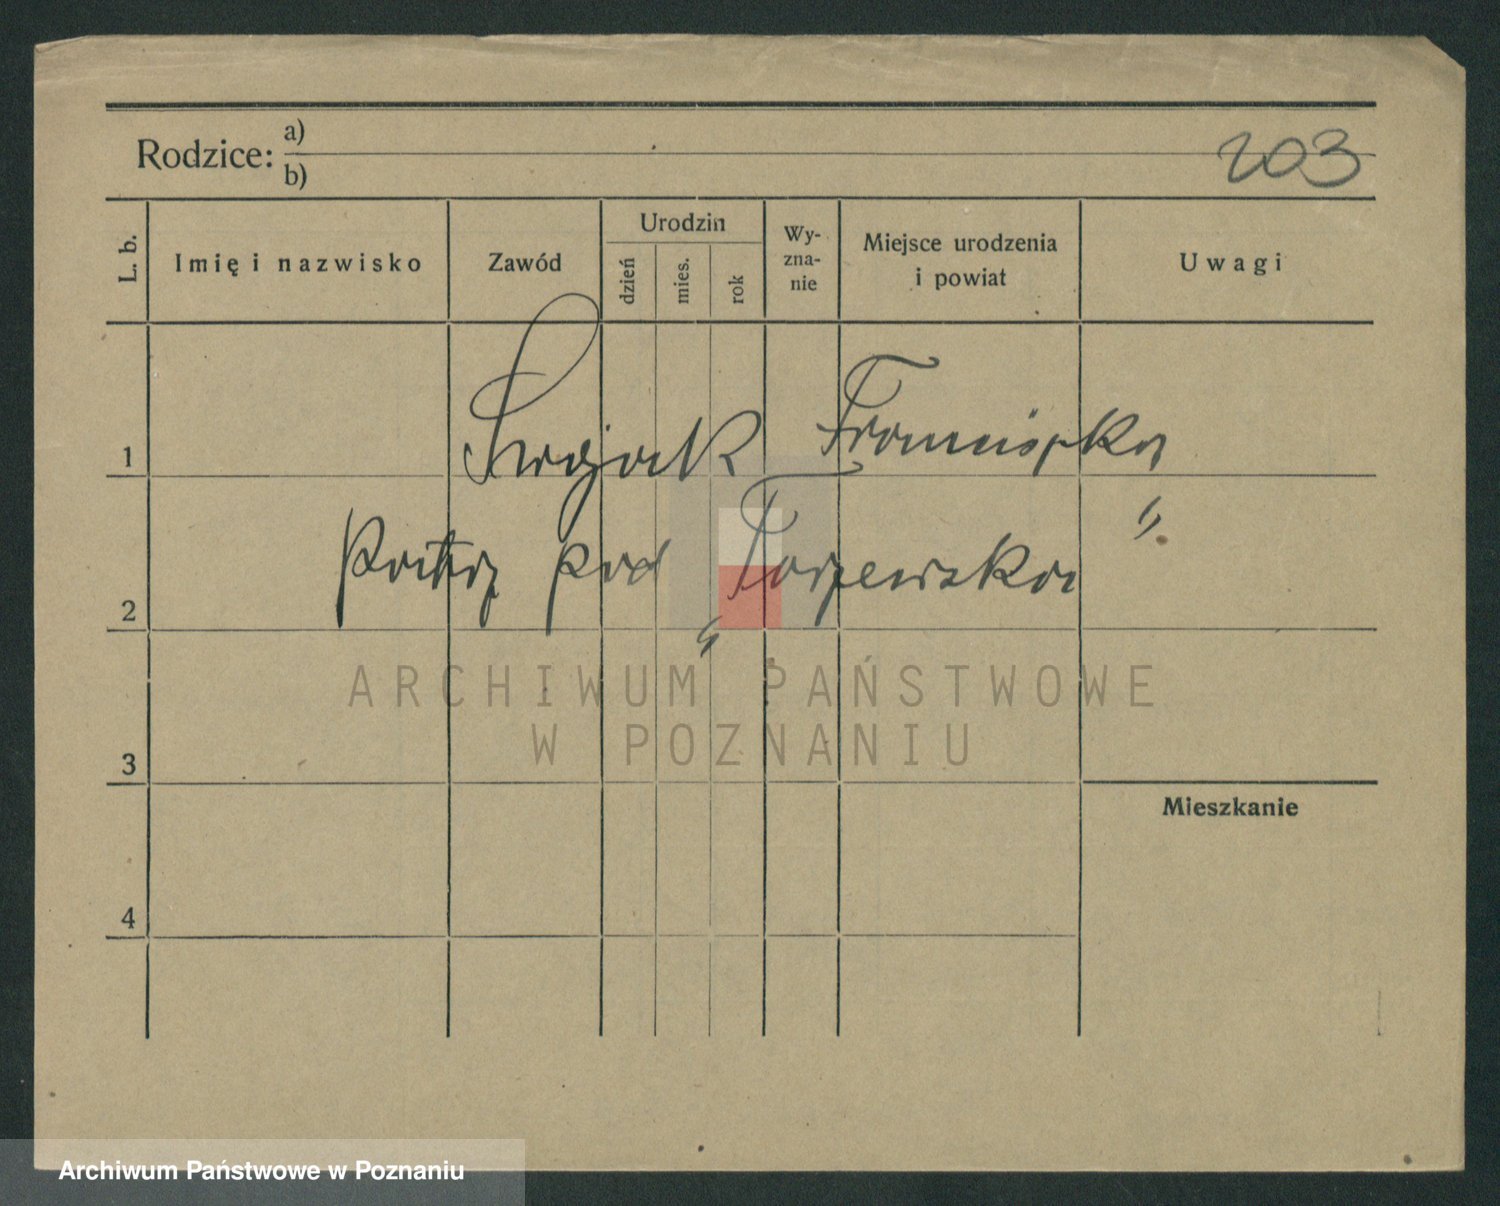 Rodzice: a)
b)
203
L. b.
Imię i nazwisko
Zawód
Urodzin
dzień
mies.
rok
Wy-
zna-
nie
Miejsce urodzenia
i powiat
Uwagi
1
Franciszka
patrz pod
"
2
"
ARCHIWUM PAŃSTWOWE
W POZNANIU
3
Mieszkanie
4
Archiwum Państwowe w Poznaniu